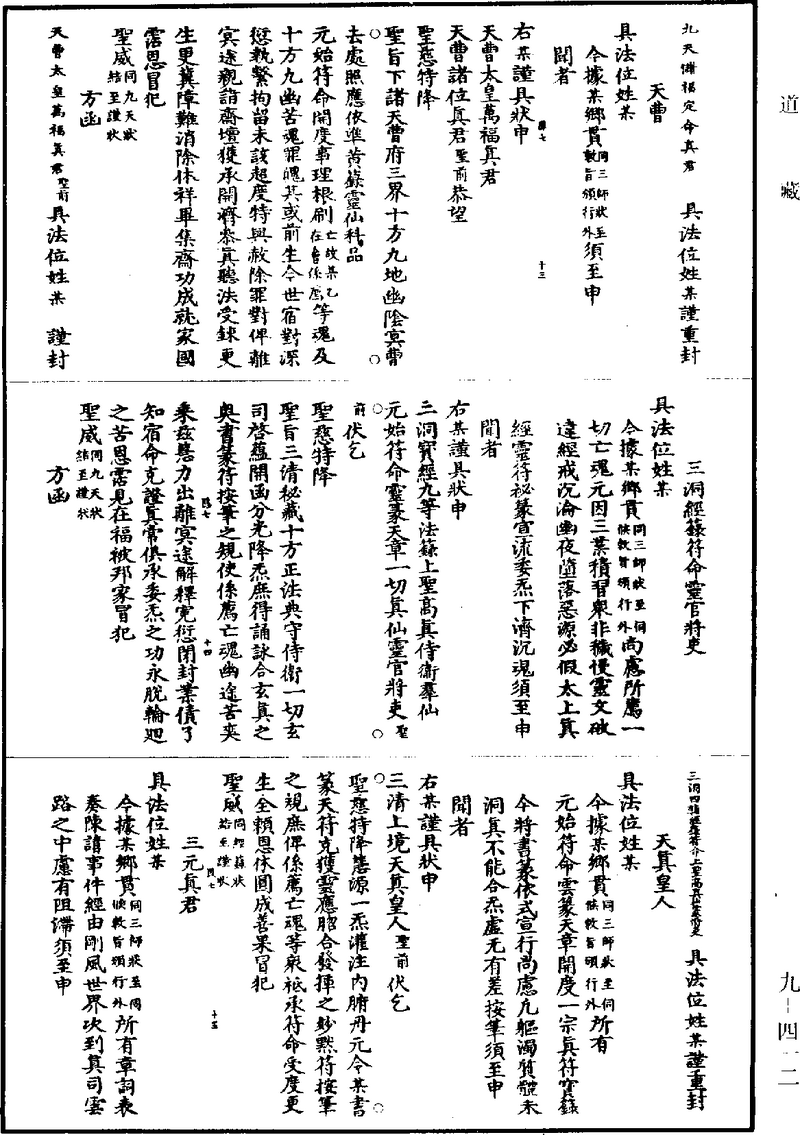 道藏
九天儲福定命真君　具法位姓某謹重封
天曹
具法位姓某
今據某鄉貫同三師狀至伺候敕旨頒行外須至申
聞者
右某謹具狀申
天曹太皇萬福真君
天曹諸位真君至前恭望
聖慈特降
聖旨下諸天曹府三界十方九地幽陰冥曹
去處照應依準黃籙靈仙科品
元始符命開度事理根刷亡故某乙在會係薦等魂及
十方九幽苦魂罪魄其或前生今世宿對深
愆執繫拘留未該超度特與赦除罪對俾離
冥途親詣齋壇獲承開濟叅真聽法受鍊更
生更冀障難消除休祥畢集齋功成就家國
霑恩冒犯
聖威同九天狀結至謹狀
方函
天曹太皇萬福真君聖前具法位姓某　謹封
三洞經籙符命靈官將吏
具法位姓某
今據某鄉貫同三師狀至伺候敕旨頒行外尚慮所薦一
切亡魂元因三業積習衆非穢慢靈文破
違經戒沉淪幽夜墮落惡源必假太上真
經靈符秘篆宣流委炁下濟沉魂須至申
聞者
右某謹具狀申
三洞寶經九等法籙上聖高真侍衛羣仙
元始符命靈篆天章一切真仙靈官將吏聖
前伏乞
聖慈特降
聖旨三清秘藏十方正法典守侍衛一切玄
司啓蘊開函分光降炁庶得誦詠合玄真之
奧書篆符按筆之規使係薦亡魂幽途苦爽
乘茲慧力出離冥途解釋寃愆閉封業債了
知宿命克證真常俱承委炁之功永脫輪迴
之苦恩霑見在福被邦家冒犯
聖威同九天狀結至謹狀
方函
三洞四輔經籙符命上聖高真靈官將吏　具法位姓某謹重封
天真皇人
具法位姓某
今據某鄉貫同三師狀至伺候敕旨頒行外所有
元始符命雲篆天章開度一宗真符寶籙
今將書篆依式宣行尚慮凢軀濁質體未
洞真不能合炁虛无有差按筆須至申
聞者
右某謹具狀申
三清上境天真皇人聖前伏乞
聖慈特降慧源一炁灌注內腑丹元令某書
篆天符克獲靈應脗合發揮之妙黙符按筆
之規庶俾係薦亡魂等衆祗承符命受度更
生全賴恩休圓成善果冒犯
聖威同經籙狀結至謹狀
三元真君
具法位姓某
今據某鄉貫同三師狀至伺候敕旨頒行外所有章詞表
奏陳請事件經由剛風世界次到真司雲
路之中慮有阻滯須至申
九-四一二